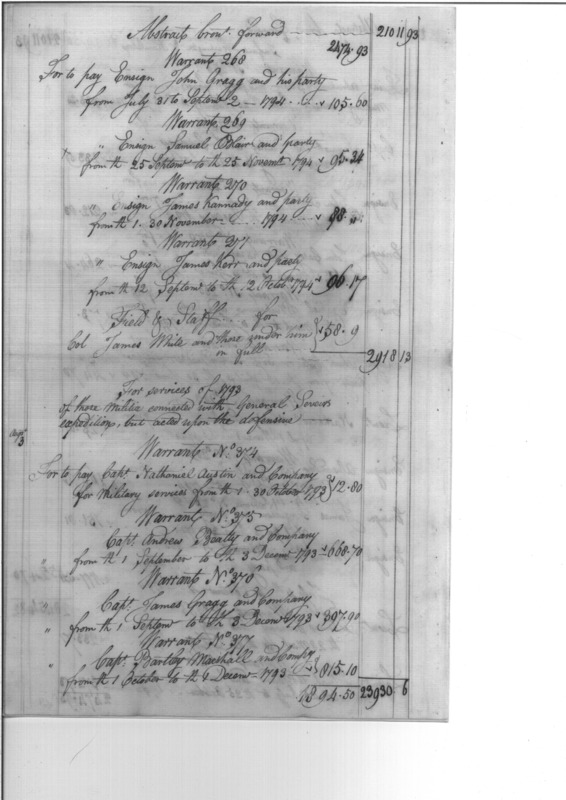 Abstracts brow.t forward 21011 93
2474.93
Warrants 268
For to pay Ensign John Gragg and his party
from July 31 to Septemr 2 1794 105.60
Warrants 269
" Ensign Samuel Blair and party
from th 25 Septemr to th 25 Novemr 1794 95.24
Warrants 270
" Ensign James Kannady and party
from th 1 30 November 1794 88.
Warrants 277
" Ensign James Kerr and party
from th 12 Septemr to th 12 Octobr 1794 96.17
Field & Staff for
Col James White and those under him 58.9
in full
2918 13
For services of 1793
of those Militia connected with General Seviers
expedition, but acted upon the defensive
3
Warrant No. 374
For to pay Capt. Nathaniel Austin and Company
for Military services from th 1 30 October 1793 12.80
Warrant No. 375
Capt. Andrew Beatty and Company
from th 1 September to th 3 Decemr 1793 668.70
Warrant No. 376
" Capt. James Gragg and Company
" from th 1 Septemr to th 3 Decemr 1793 397.90
Warrant No. 377
" Capt. Bartley Marshall and Compy
from th 1 October to th 4 Decemr 1793 815.10
1894.50 23930 6